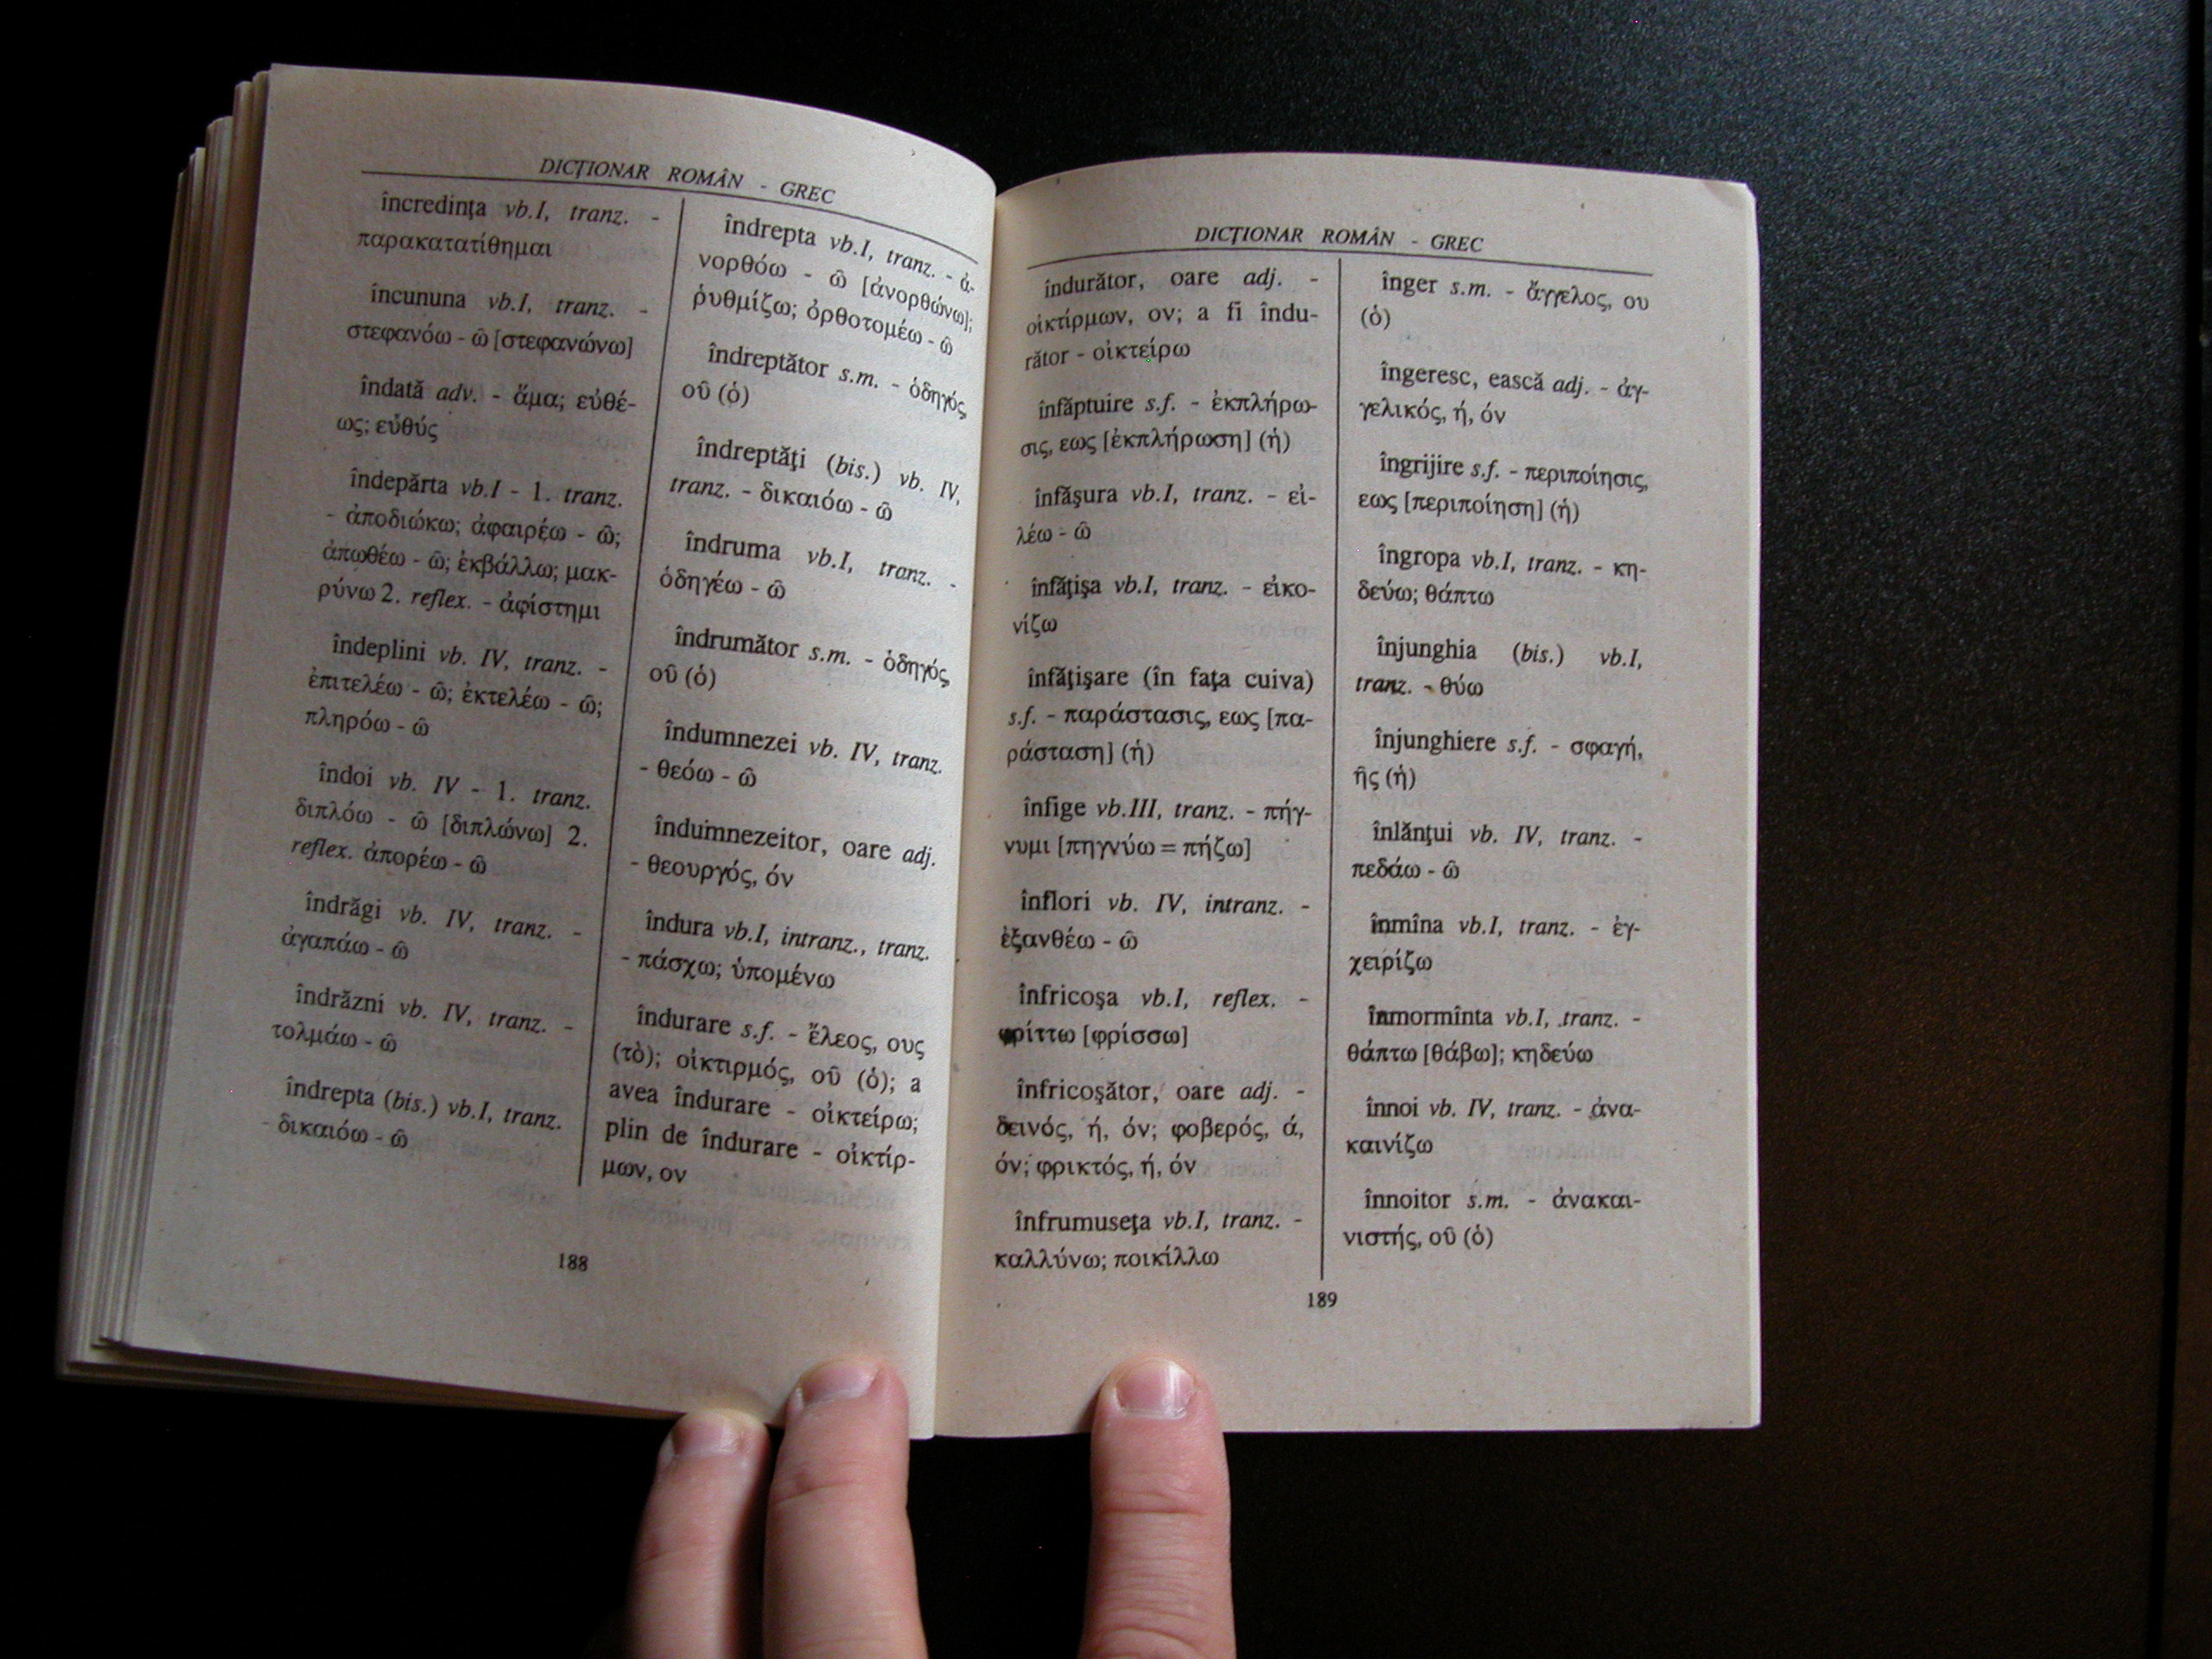 DICŢIONAR ROMÂN - GREC
încredinţa vb.I, tranz. -
παρακατατίθημαι
încununa vb.I, tranz. -
στεφανόω - ῶ [στεφανώνω]
îndată adv. - ἅμα; εὐθέ-
ως; εὐθύς
îndepărta vb.I - 1. tranz.
- ἀποδιώκω; ἀφαιρέω - ῶ;
ἀπωθέω - ῶ; ἐκβάλλω; μακ-
ρύνω 2. reflex. - ἀφίστημι
îndeplini vb. IV, tranz. -
ἐπιτελέω - ῶ; ἐκτελέω - ῶ;
πληρόω - ῶ
îndoi vb. IV - 1. tranz.
διπλόω - ῶ [διπλώνω] 2.
reflex. ἀπορέω - ῶ
îndrăgi vb. IV, tranz. -
ἀγαπάω - ῶ
îndrăzni vb. IV, tranz. -
τολμάω - ῶ
îndrepta (bis.) vb.I, tranz.
- δικαιόω - ῶ
îndrepta vb.I, tranz. - ἀ-
νορθόω - ῶ [ἀνορθώνω];
ῥυθμίζω; ὀρθοτομέω - ῶ
îndreptător s.m. - ὁδηγός,
οῦ (ὁ)
îndreptăţi (bis.) vb. IV,
tranz. - δικαιόω - ῶ
îndruma vb.I, tranz. -
ὁδηγέω - ῶ
îndrumător s.m. - ὁδηγός,
οῦ (ὁ)
îndumnezei vb. IV, tranz.
- θεόω - ῶ
îndumnezeitor, oare adj.
- θεουργός, όν
îndura vb.I, intranz., tranz.
- πάσχω; ὑπομένω
îndurare s.f. - ἔλεος, ους
(τὸ); οἰκτιρμός, οῦ (ὁ); a
avea îndurare - οἰκτείρω;
plin de îndurare - οἰκτίρ-
μων, ον
188
DICŢIONAR ROMÂN - GREC
îndurător, oare adj. -
οἰκτίρμων, ον; a fi îndu-
rător - οἰκτείρω
înfăptuire s.f. - ἐκπλήρω-
σις, εως [ἐκπλήρωση] (ἡ)
înfăşura vb.I, tranz. - εἰ-
λέω - ῶ
înfăţişa vb.I, tranz. - εἰκο-
νίζω
înfăţişare (în faţa cuiva)
s.f. - παράστασις, εως [πα-
ράσταση] (ἡ)
înfige vb.III, tranz. - πήγ-
νυμι [πηγνύω = πήζω]
înflori vb. IV, intranz. -
ἐξανθέω - ῶ
înfricoşa vb.I, reflex. -
φρίττω [φρίσσω]
înfricoşător, oare adj. -
δεινός, ή, όν; φοβερός, ά,
όν; φρικτός, ή, όν
înfrumuseţa vb.I, tranz. -
καλλύνω; ποικίλλω
înger s.m. - ἄγγελος, ου
(ὁ)
îngeresc, ească adj. - ἀγ-
γελικός, ή, όν
îngrijire s.f. - περιποίησις,
εως [περιποίηση] (ἡ)
îngropa vb.I, tranz. - κη-
δεύω; θάπτω
înjunghia (bis.) vb.I,
tranz. - θύω
înjunghiere s.f. - σφαγή,
ῆς (ἡ)
înlănţui vb. IV, tranz. -
πεδάω - ῶ
înmîna vb.I, tranz. - ἐγ-
χειρίζω
înmormînta vb.I, tranz. -
θάπτω [θάβω]; κηδεύω
înnoi vb. IV, tranz. - ἀνα-
καινίζω
înnoitor s.m. - ἀνακαι-
νιστής, οῦ (ὁ)
189